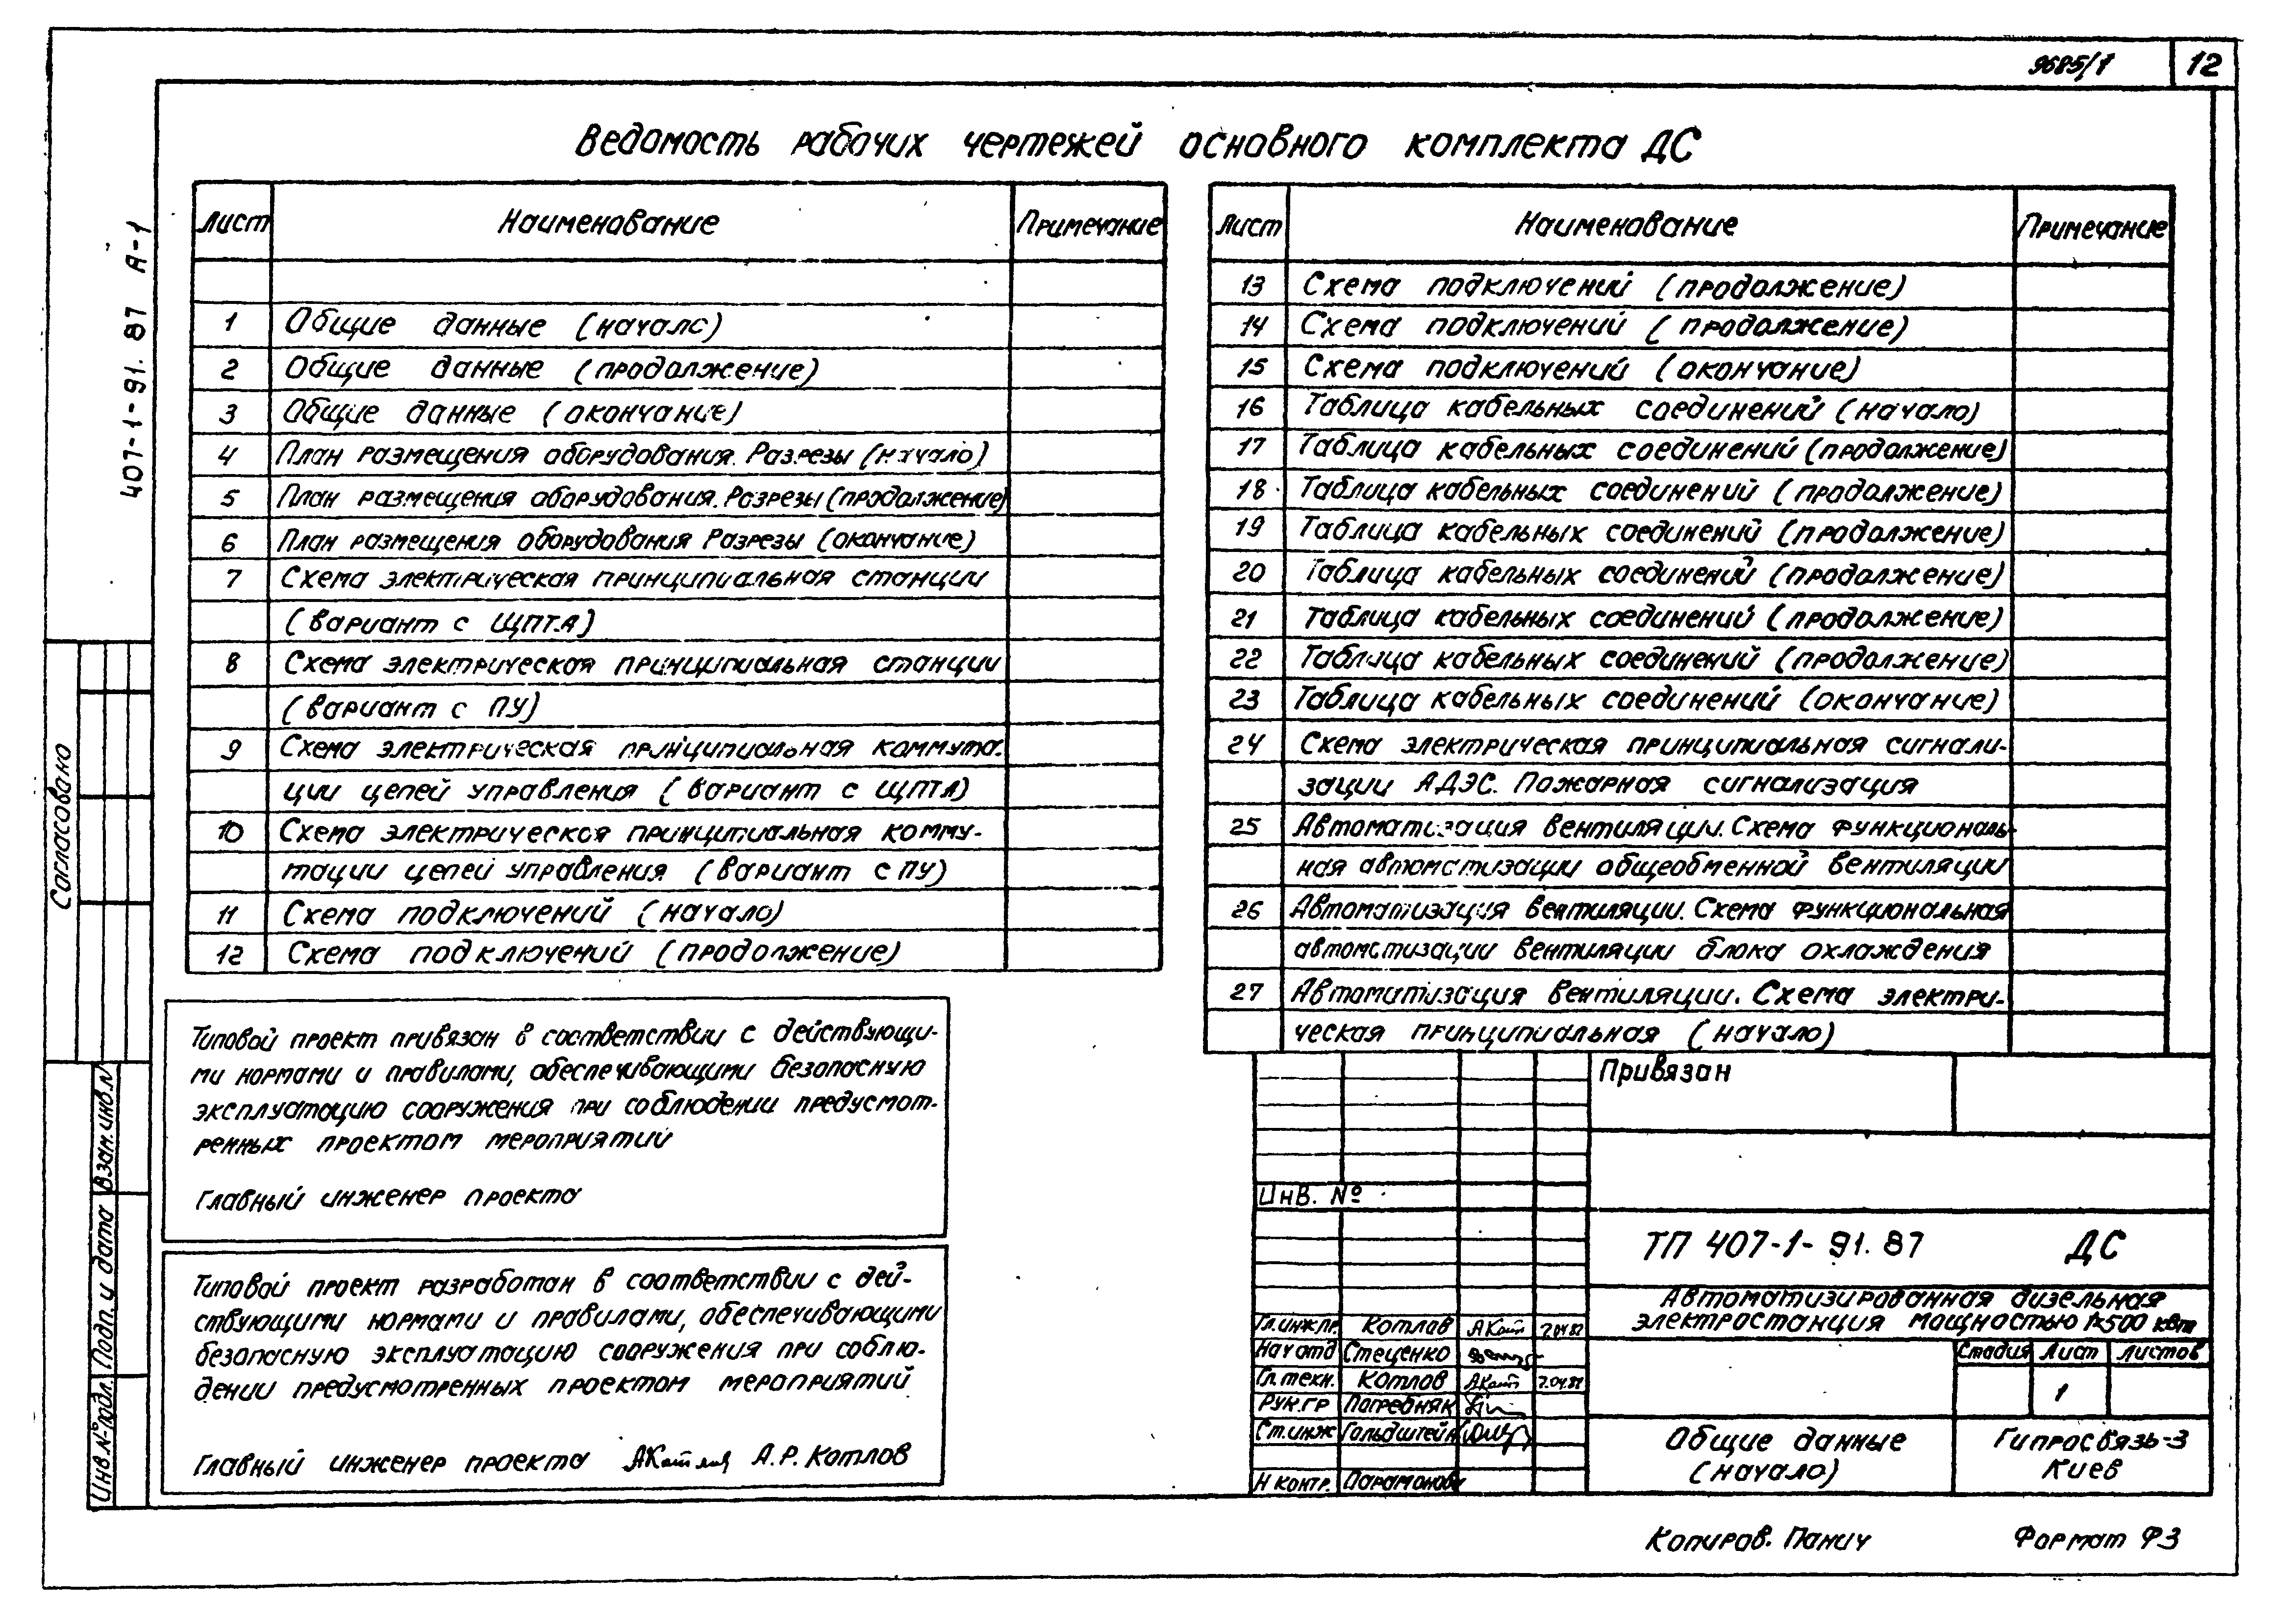 9685/1
12
407-1-91.87 А-1
Ведомость рабочих чертежей основного комплекта ДС
Лист Наименование Примечание
1 Общие данные (начало)
2 Общие данные (продолжение)
3 Общие данные (окончание)
4 План размещения оборудования. Разрезы (начало)
5 План размещения оборудования. Разрезы (продолжение)
6 План размещения оборудования Разрезы (окончание)
7 Схема электрическая принципиальная станции
(вариант с ЩПТА)
8 Схема электрическая принципиальная станции
(вариант с ПУ)
9 Схема электрическая принципиальная коммута-
ции цепей управления (вариант с ЩПТА)
10 Схема электрическая принципиальная комму-
тации цепей управления (вариант с ПУ)
11 Схема подключений (начало)
12 Схема подключений (продолжение)
Лист Наименование Примечание
13 Схема подключений (продолжение)
14 Схема подключений (продолжение)
15 Схема подключений (окончание)
16 Таблица кабельных соединений (начало)
17 Таблица кабельных соединений (продолжение)
18 Таблица кабельных соединений (продолжение)
19 Таблица кабельных соединений (продолжение)
20 Таблица кабельных соединений (продолжение)
21 Таблица кабельных соединений (продолжение)
22 Таблица кабельных соединений (продолжение)
23 Таблица кабельных соединений (окончание)
24 Схема электрическая принципиальная сигнали-
зации АДЭС. Пожарная сигнализация
25 Автоматизация вентиляции. Схема функциональ-
ная автоматизации общеобменной вентиляции
26 Автоматизация вентиляции. Схема функциональная
автоматизации вентиляции блока охлаждения
27 Автоматизация вентиляции. Схема электри-
ческая принципиальная (начало)
Типовой проект привязан в соответствии с действующи-
ми нормами и правилами, обеспечивающими безопасную
эксплуатацию сооружения при соблюдении предусмот-
ренных проектом мероприятий
Главный инженер проекта
Типовой проект разработан в соответствии с дей-
ствующими нормами и правилами, обеспечивающими
безопасную эксплуатацию сооружения при соблю-
дении предусмотренных проектом мероприятий
Главный инженер проекта А.Р. Котлов
Согласовано
Взам. инв. N
Подп. и дата
Инв. № подл.
Привязан
Инв. №
ТП 407-1-91.87 ДС
Автоматизированная дизельная
электростанция мощностью 1×500 квт
Гл. инж. пр Котлов 7.04.87
Нач отд Стеценко
Гл. техн. Котлов 7.04.87
Рук. гр Погребняк
Ст. инж Гольдштейн
Н контр. Парамонова
Стадия Лист Листов
1
Общие данные
(начало)
Гипросвязь-3
Киев
Копиров. Панич
Формат Ф3